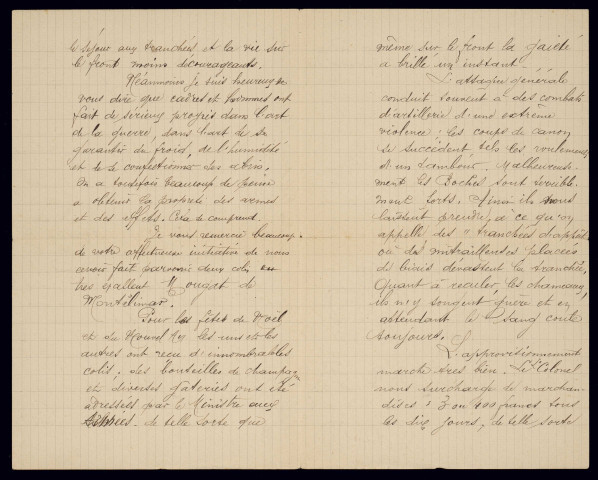 le séjour aux tranchées et la vie sur
le front moins décourageants.
Néanmoins je suis heureux de
vous dire que cadres et hommes ont
fait de sérieux progrès dans l'art
de la guerre, dans l'art de se
garantir du froid, de l'humidité
et de se confectionner des abris.
On a toutefois beaucoup de peine
a obtenir la propreté des armes
et des effets. Cela se comprend.
Je vous remercie beaucoup
de votre affectueuse initiative de nous
avoir fait parvenir deux colis
très excellent Nougat de
Montélimar.
Pour les fêtes de Noël
et du Nouvel An les uns et les
autres ont reçu d'innombrables
colis. Des bouteilles de champagne
et diverses gâteries ont été
adressées par le Ministre aux
Armées. de telle sorte que
même sur le front la gaieté
a brillé un instant.
L'attaque générale
conduit souvent à des combats
d'artillerie d'une extrême
violence : les coups de canon
se succèdent tels les roulements
d'un tambour. Malheureuse-
ment les Boches sont terrible-
ment forts. Ainsi ils nous
laissent prendre, à ce qu'on
appelle des "tranchées d'appât"
où des mitrailleuses placées
de biais dévastent la tranchée.
Quant à reculer, les chameaux,
ils n'y songent guère et en
attendant le sang coule
toujours.
L'approvisionnement
marche très bien. Le Lt Colonel
nous surcharge de marchan-
dises : 3 ou 400 francs tous
les dix jours, de telle sorte